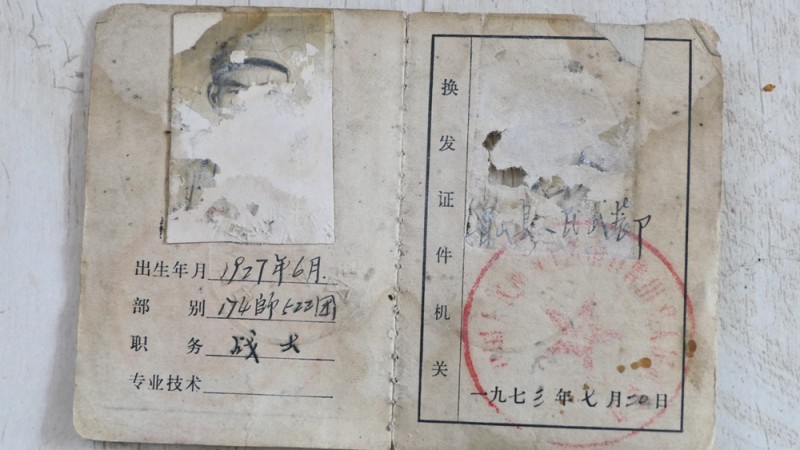 出生年月 1927年6月
部别 174師522团
职务 战士
专业技术
换发证件机关
县人民武装部
一九七三年七月二〇日